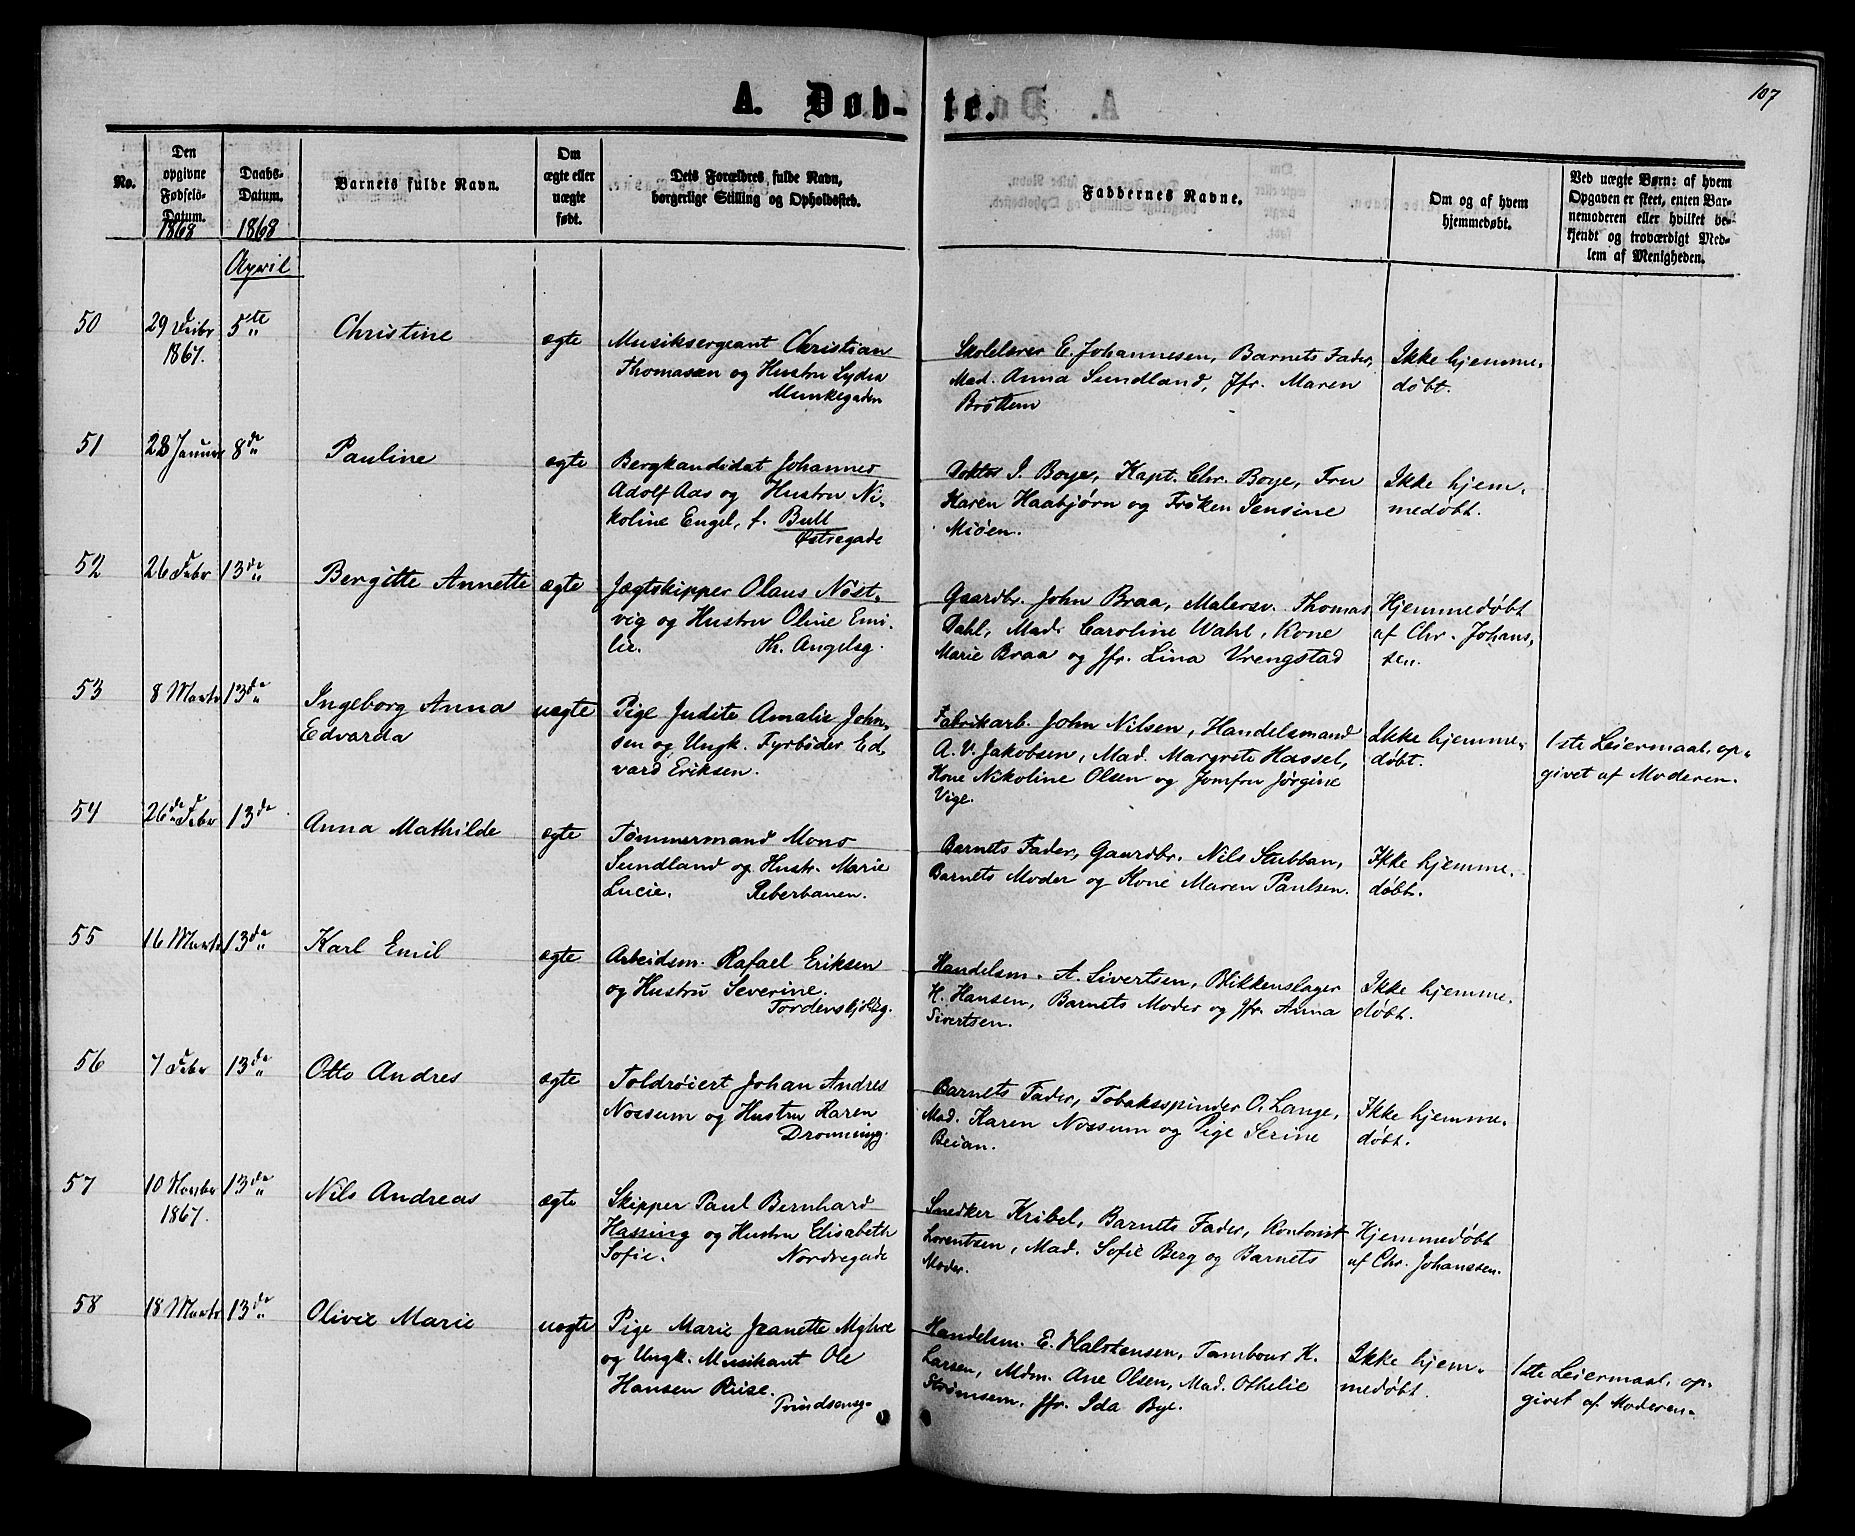 107
A. Døb-te.
No.
Den opgivne Fødsels-Datum.
Daabs-Datum.
Barnets fulde Navn.
Om ægte eller uægte født.
Dets Forældres fulde Navn, borgerlige Stilling og Opholdssted.
Faddernes Navne.
Om og af hvem hjemmedøbt.
Ved uægte Børn: af hvem Opgaven er skeet, enten Barnemoderen eller hvilket bekjendt og troværdigt Medlem af Menigheden.
1868 1868
April
50 29 Febr 5te Christine ægte Musiksergeant Christian Skolelærer E. Johannesen, Barnets Fader, Ikke hjemme-
1867. Thomasen og Hustru Lydia Mad. Anna Sundland, Jfr. Maren døbt.
Munkegaden Brøttem
51 28 Januar 8de Pauline ægte Bergkandidat Johannes Doktor I. Boye, Kapt. Chr. Boye, Fru Ikke hjem-
Adolf Aas og Hustru Ni- Karen Haabjørn og Frøken Jensine medøbt.
koline Engel, f. Bull Miöen.
Østregade
52 26 Febr 13de Bergitte Annette ægte Jægtskipper Olaus Nöst- Gaardbr. John Braa, Malersv. Thomas Hjemmedøbt
vig og Hustru Oline Emi- Dahl, Mad. Caroline Wahl, Kone af Chr. Johans-
lie. Th. Angelsg. Marie Braa og Jfr. Lina Vrengstad sen.
53 8 Marts 13de Ingeborg Anna uægte Pige Judite Amalie John- Fabrikarb. John Nilsen, Handelsmand Ikke hjemme- 1ste Leiermaal, op-
Edvarda sen og Ungk. Fyrbøder Ed- A. V. Jakobsen, Mad. Margrete Hassel, døbt. givet af Moderen.
vard Eriksen. Kone Nikoline Olsen og Jomfru Jørgine
Vige.
54 26de Febr 13de Anna Mathilde ægte Tømmermand Mons Barnets Fader, Gaardbr. Nils Stubban, Ikke hjemme-
Sundland og Hustr. Marie Barnets Moder og Kone Maren Paulsen. døbt.
Lucie. Reberbanen.
55 16 Marts 13de Karl Emil ægte Arbeidsm. Rafael Eriksen Handelsm. A. Sivertsen, Blikkenslager Ikke hjemme-
og Hustru Severine. H. Hansen, Barnets Moder og Jfr. Anna døbt.
Tordenskjoldsg. Sivertsen.
56 7 Febr 13de Otto Andres ægte Toldrøiert Johan Andres Barnets Fader, Tobaksspinder O. Lange, Ikke hjemme-
Nossum og Hustru Karen Mad. Karen Nossum og Pige Serine døbt.
Dronningg. Beian.
57 10 Novbr 13de Nils Andreas ægte Skipper Paul Bernhard Snedker Kribel, Barnets Fader, Kontorist Hjemmedøbt
1867. Hassing og Hustru Elisabeth Lorentsen, Mad. Sofie Berg og Barnets af Chr. Johanssen.
Sofie. Nordregade Moder.
58 18 Marts 13de Olivie Marie uægte Pige Marie Jeanette Myhre Handelsm. E. Halstensen, Tambour K. Ikke hjem- 1ste Leiermaal, op-
og Ungk. Musikant Ole Larsen, Mdm. Ane Olsen, Mad. Othelie medøbt. givet af Moderen.
Hansen Riise. Strømsem. Jfr. Ida Bye.